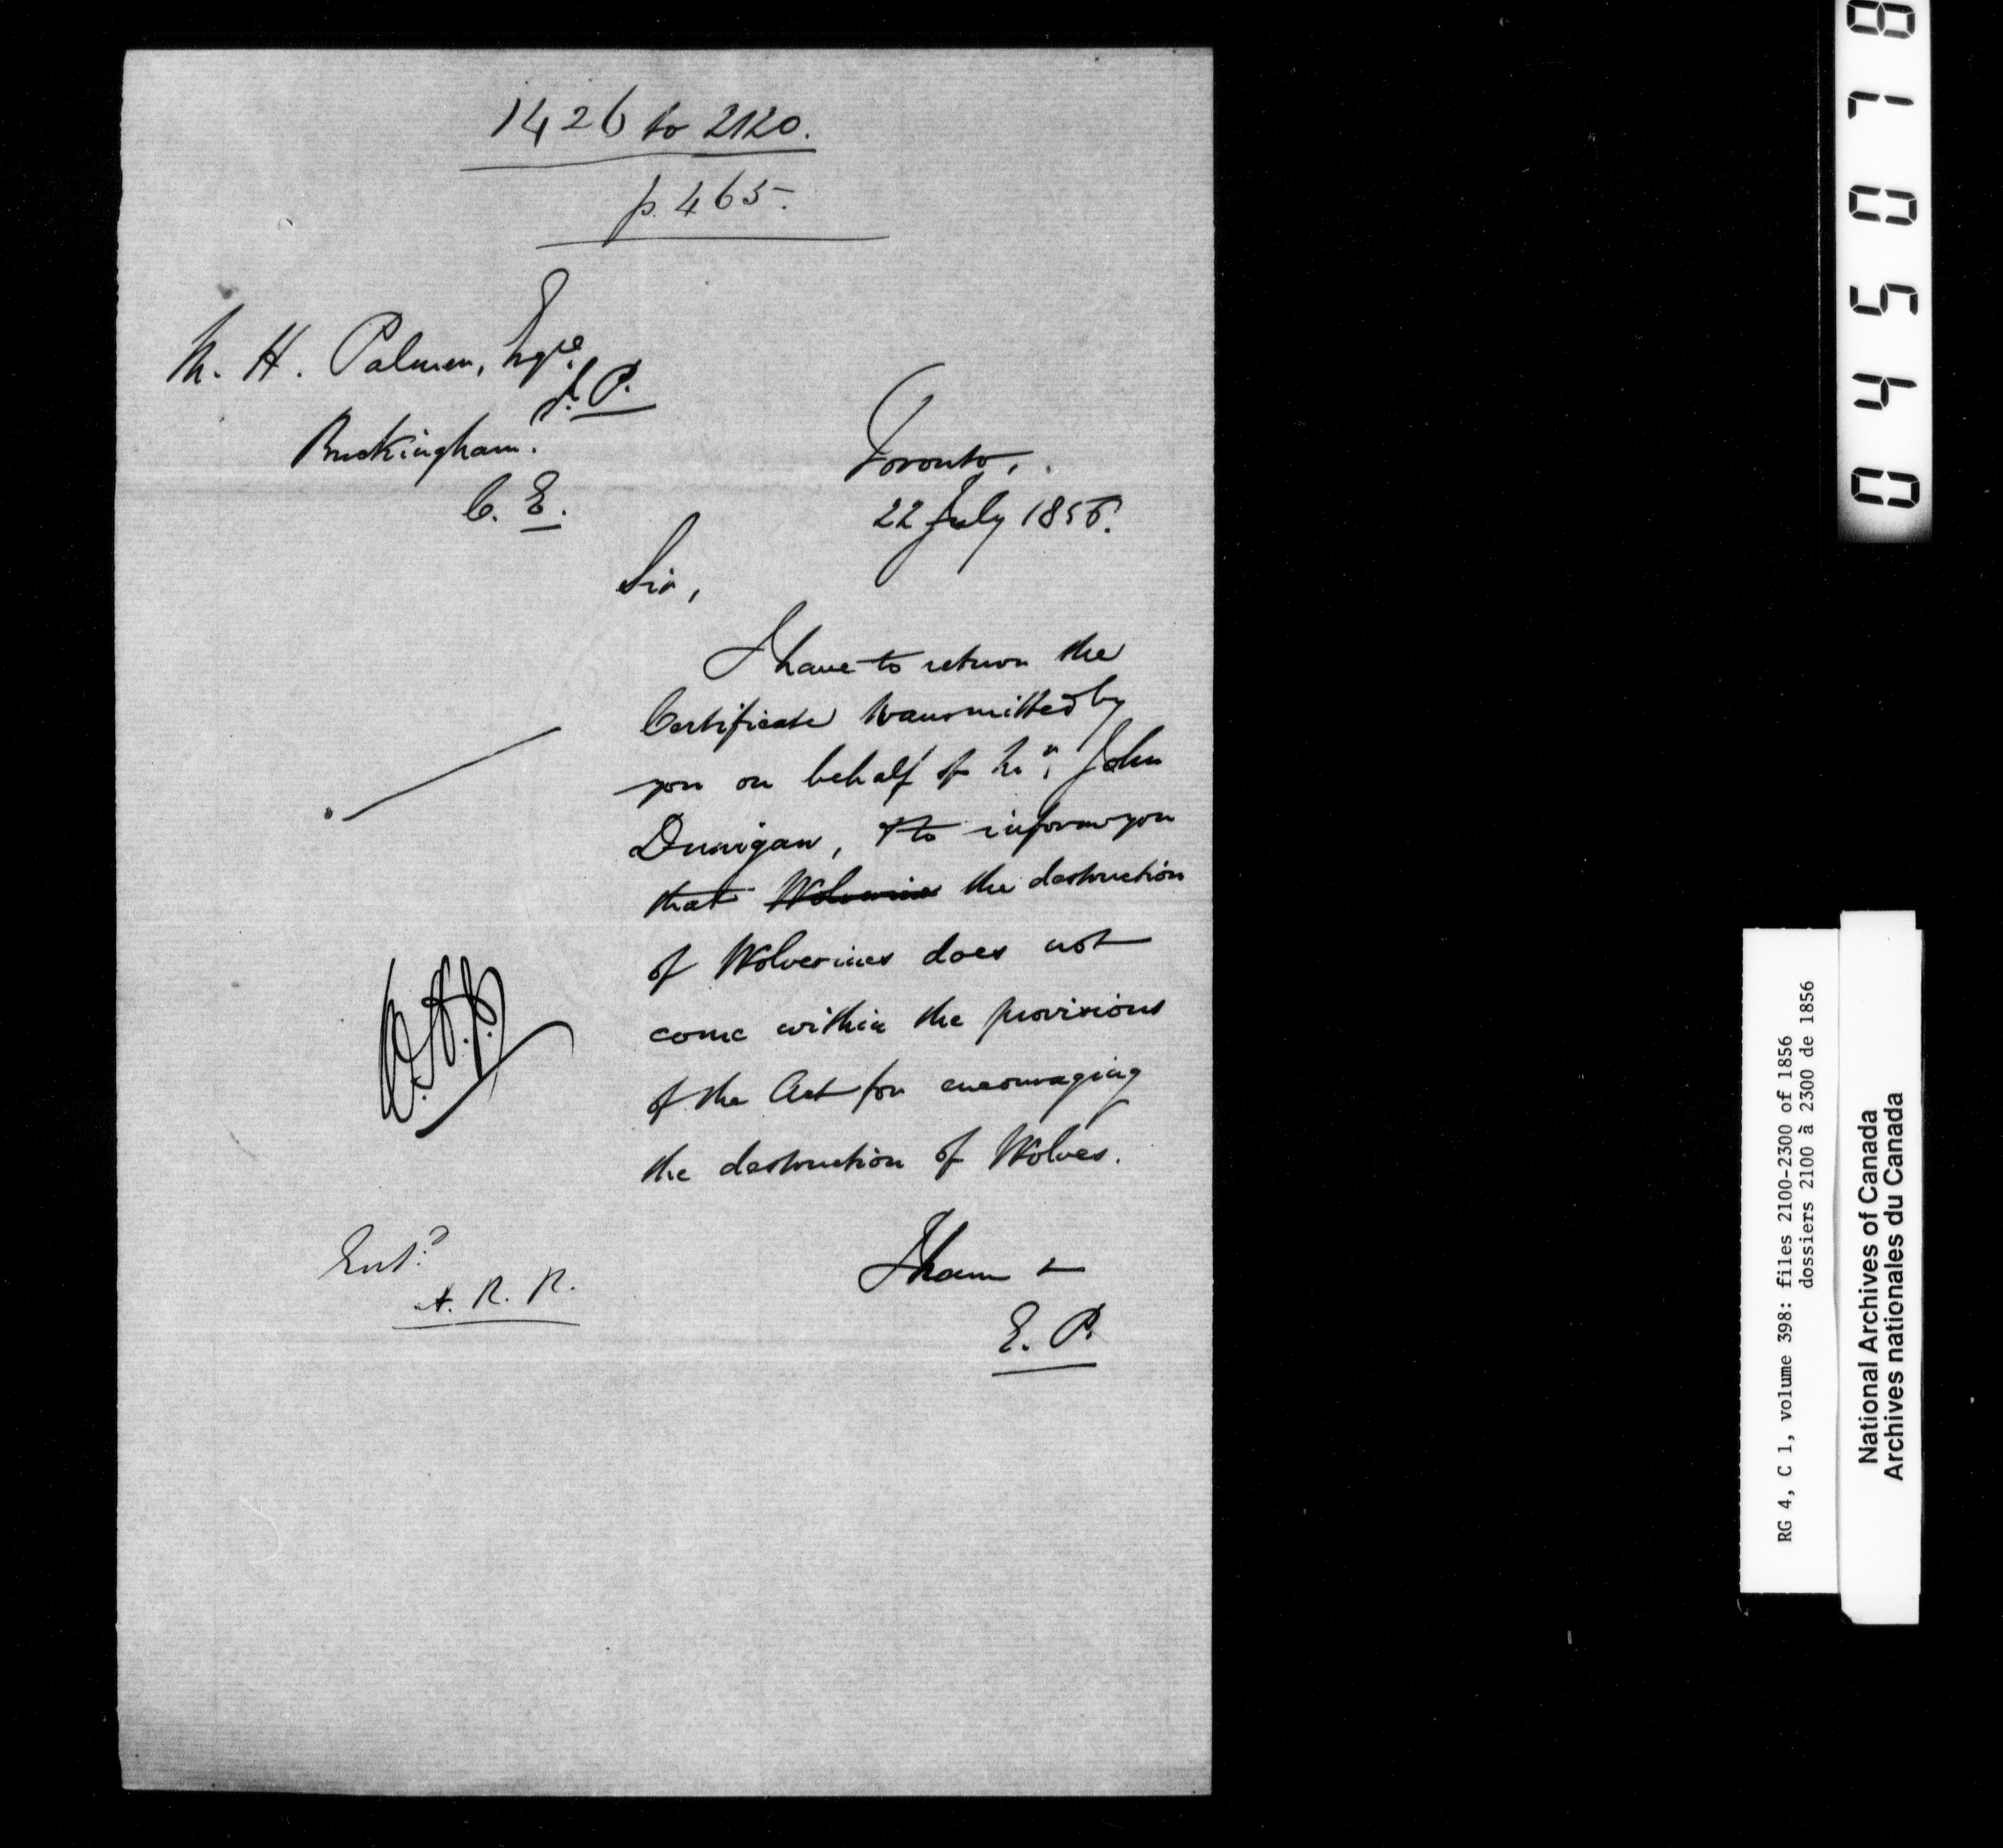 1426 to 2120.
p. 465.
M. H. Palmer, Esqre.
J. P.
Buckingham.
C. E.
Toronto,
22 July 1856.
Sir,
I have to return the
Certificate transmitted by
you on behalf of Mr. John
Dunigan, & to inform you
that Wolverines the destruction
of Wolverines does not
come within the provisions
of the Act for encouraging
the destruction of Wolves.
I have &
E. P.
Entd.
A. R. R.
045078
RG 4, C 1, volume 398: files 2100-2300 of 1856
dossiers 2100 à 2300 de 1856
National Archives of Canada
Archives nationales du Canada